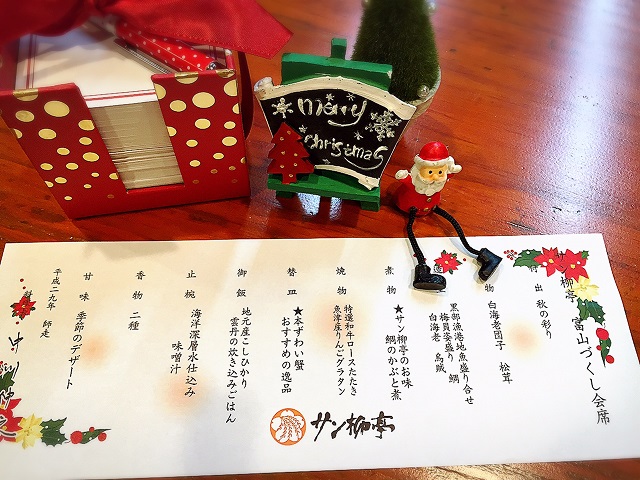 merry
christmas
柳亭 富山づくし会席
付出 秋の彩り
物 白海老団子 松茸
黒部漁港地魚盛り合せ
梅貝姿盛り 鯛
白海老 烏賊
煮物 ★サン柳亭のお味
鯛のかぶと煮
焼物 特選和牛ロースたたき
魚津産りんごグラタン
替皿 ★本ずわい蟹
おすすめの逸品
御飯 地元産こしひかり
雲丹の炊き込みごはん
止椀 海洋深層水仕込み
味噌汁
香物 二種
甘味 季節のデザート
平成二九年 師走
サン柳亭